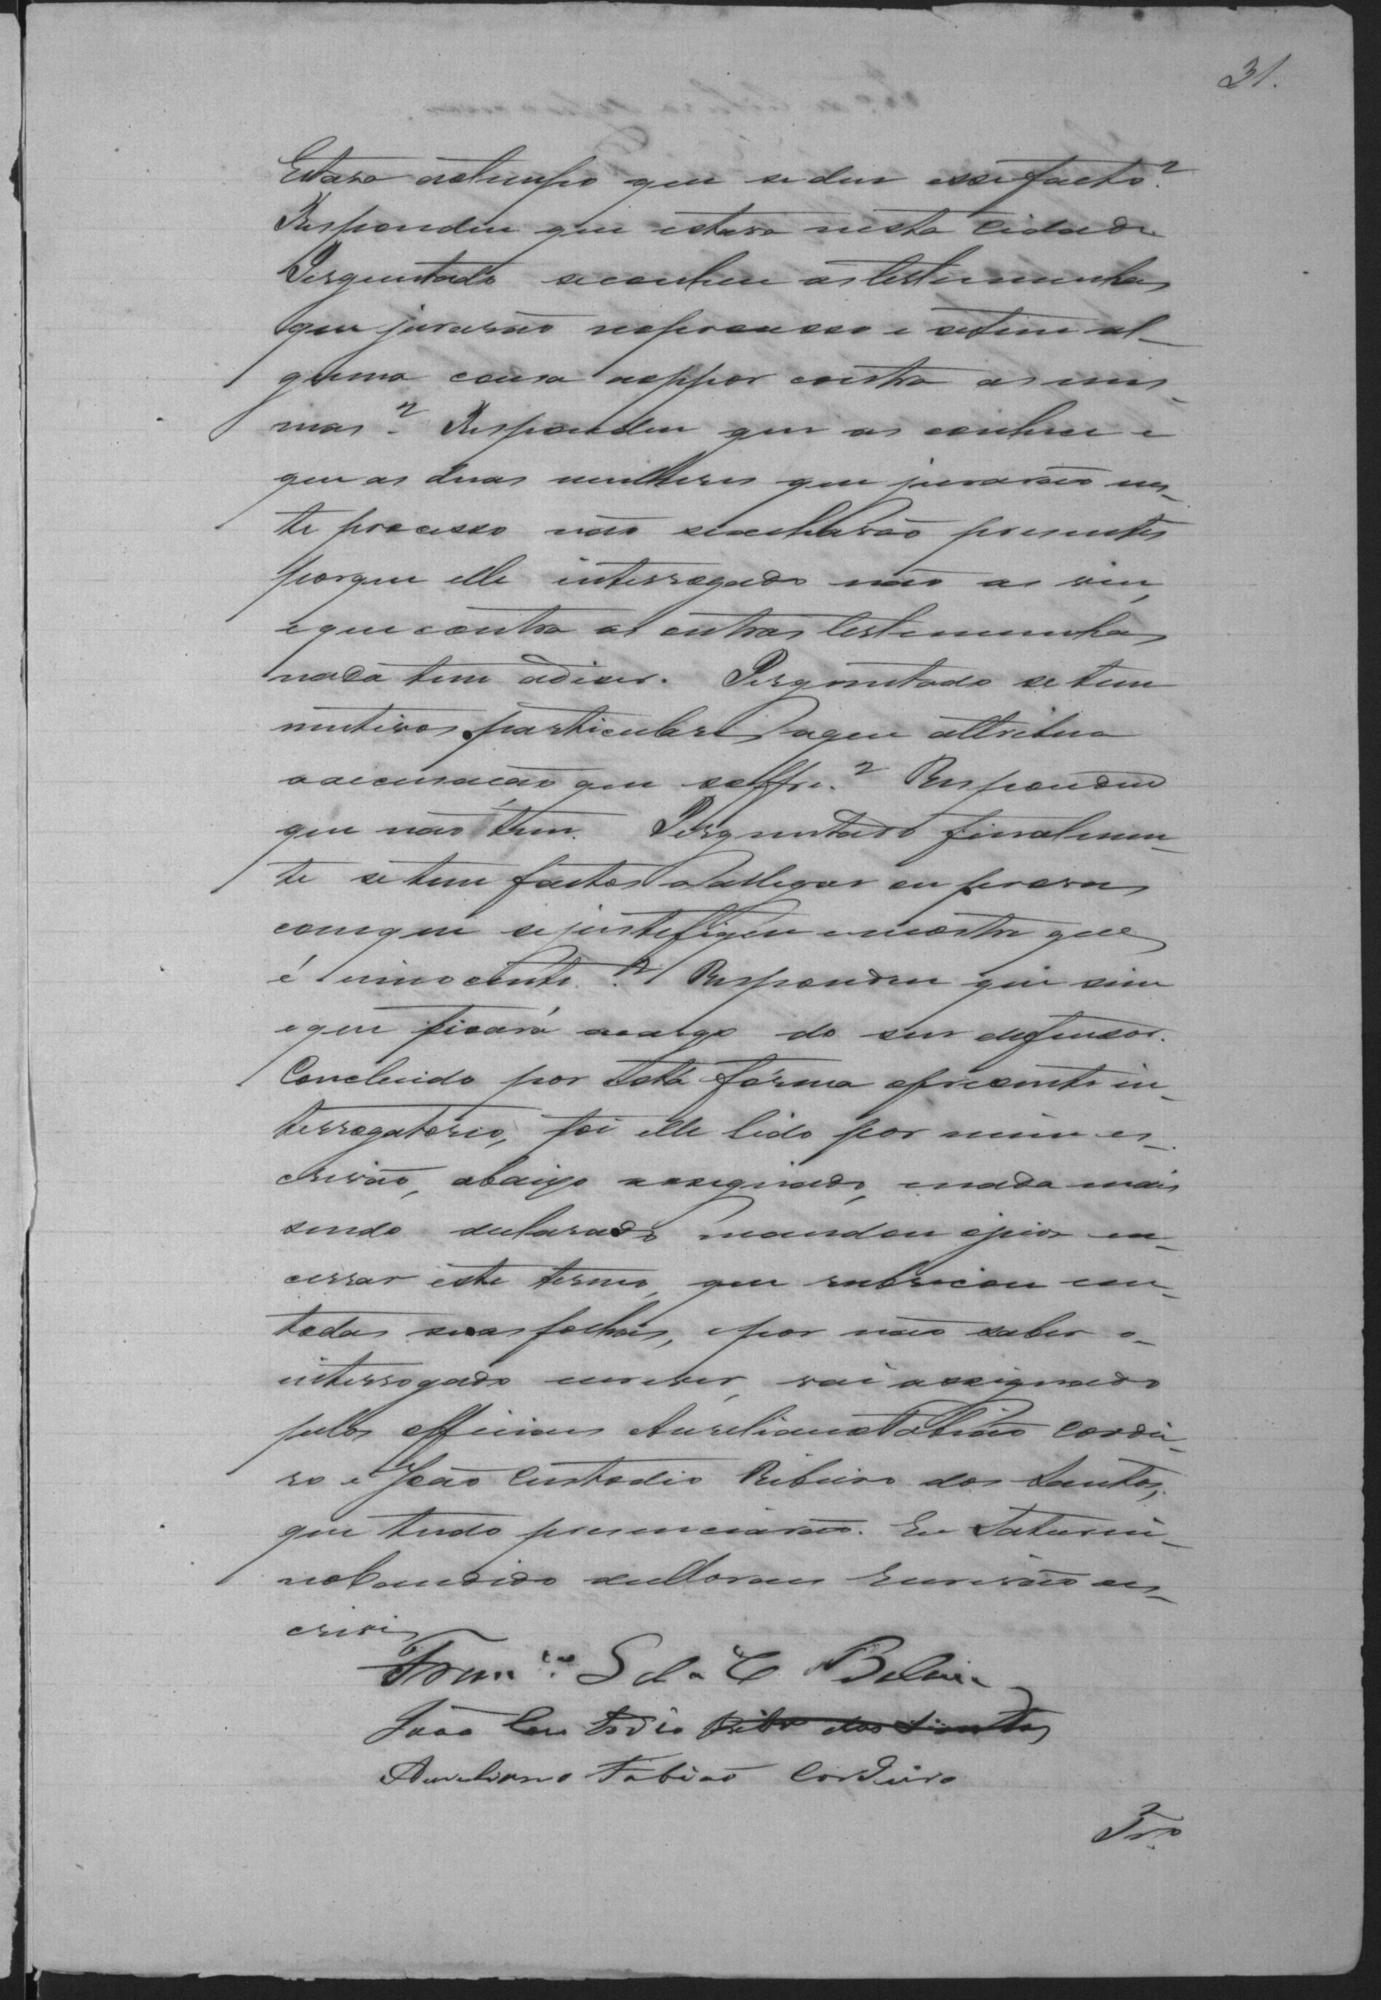 31.
Estava aotempo que sedeu essefacto?
Respondeu que estava nesta Cidade
Perguntado seconhece astestemunhas
que jurarão noprocesso e setem al-
guma cousa aoppor contra as mes-
mas? Respondeu que as conhece e
que as duas mulheres que jurarão nes-
te processo não seacharão presentes
porque elle interrogado não as viu,
eque contra as outras testemunhas
nada tem adiser. Perguntado setem
motivos particulares aque attribua
aaccusação que soffre? Respondeu
que não tem. Perguntado finalmen-
te se tem factos a allegar ou provas
comque sejustifique emostre que
é innocente? Respondeu que sim
eque ficará acargo do seu defensor.
Concluido por esta forma opresente in-
terrogatorio, foi elle lido por mim es-
crivão, abaixo assignado, enada mais
sendo declarado mandou ojuiz en-
cerrar este termo, que rubricou em
todas suasfolhas, epor não saber o
interrogado escrever, vai assignado
pelos officiaes Aureliano Fabião Cordei-
ro e João Custodio Ribeiro dos Santos,
que tudo presenciarão. Eu Saturni-
noCandido Escrivão es-
crevi
S da C
João Custodio Ribro dos Santos
Aureliano Fabião Cordeiro